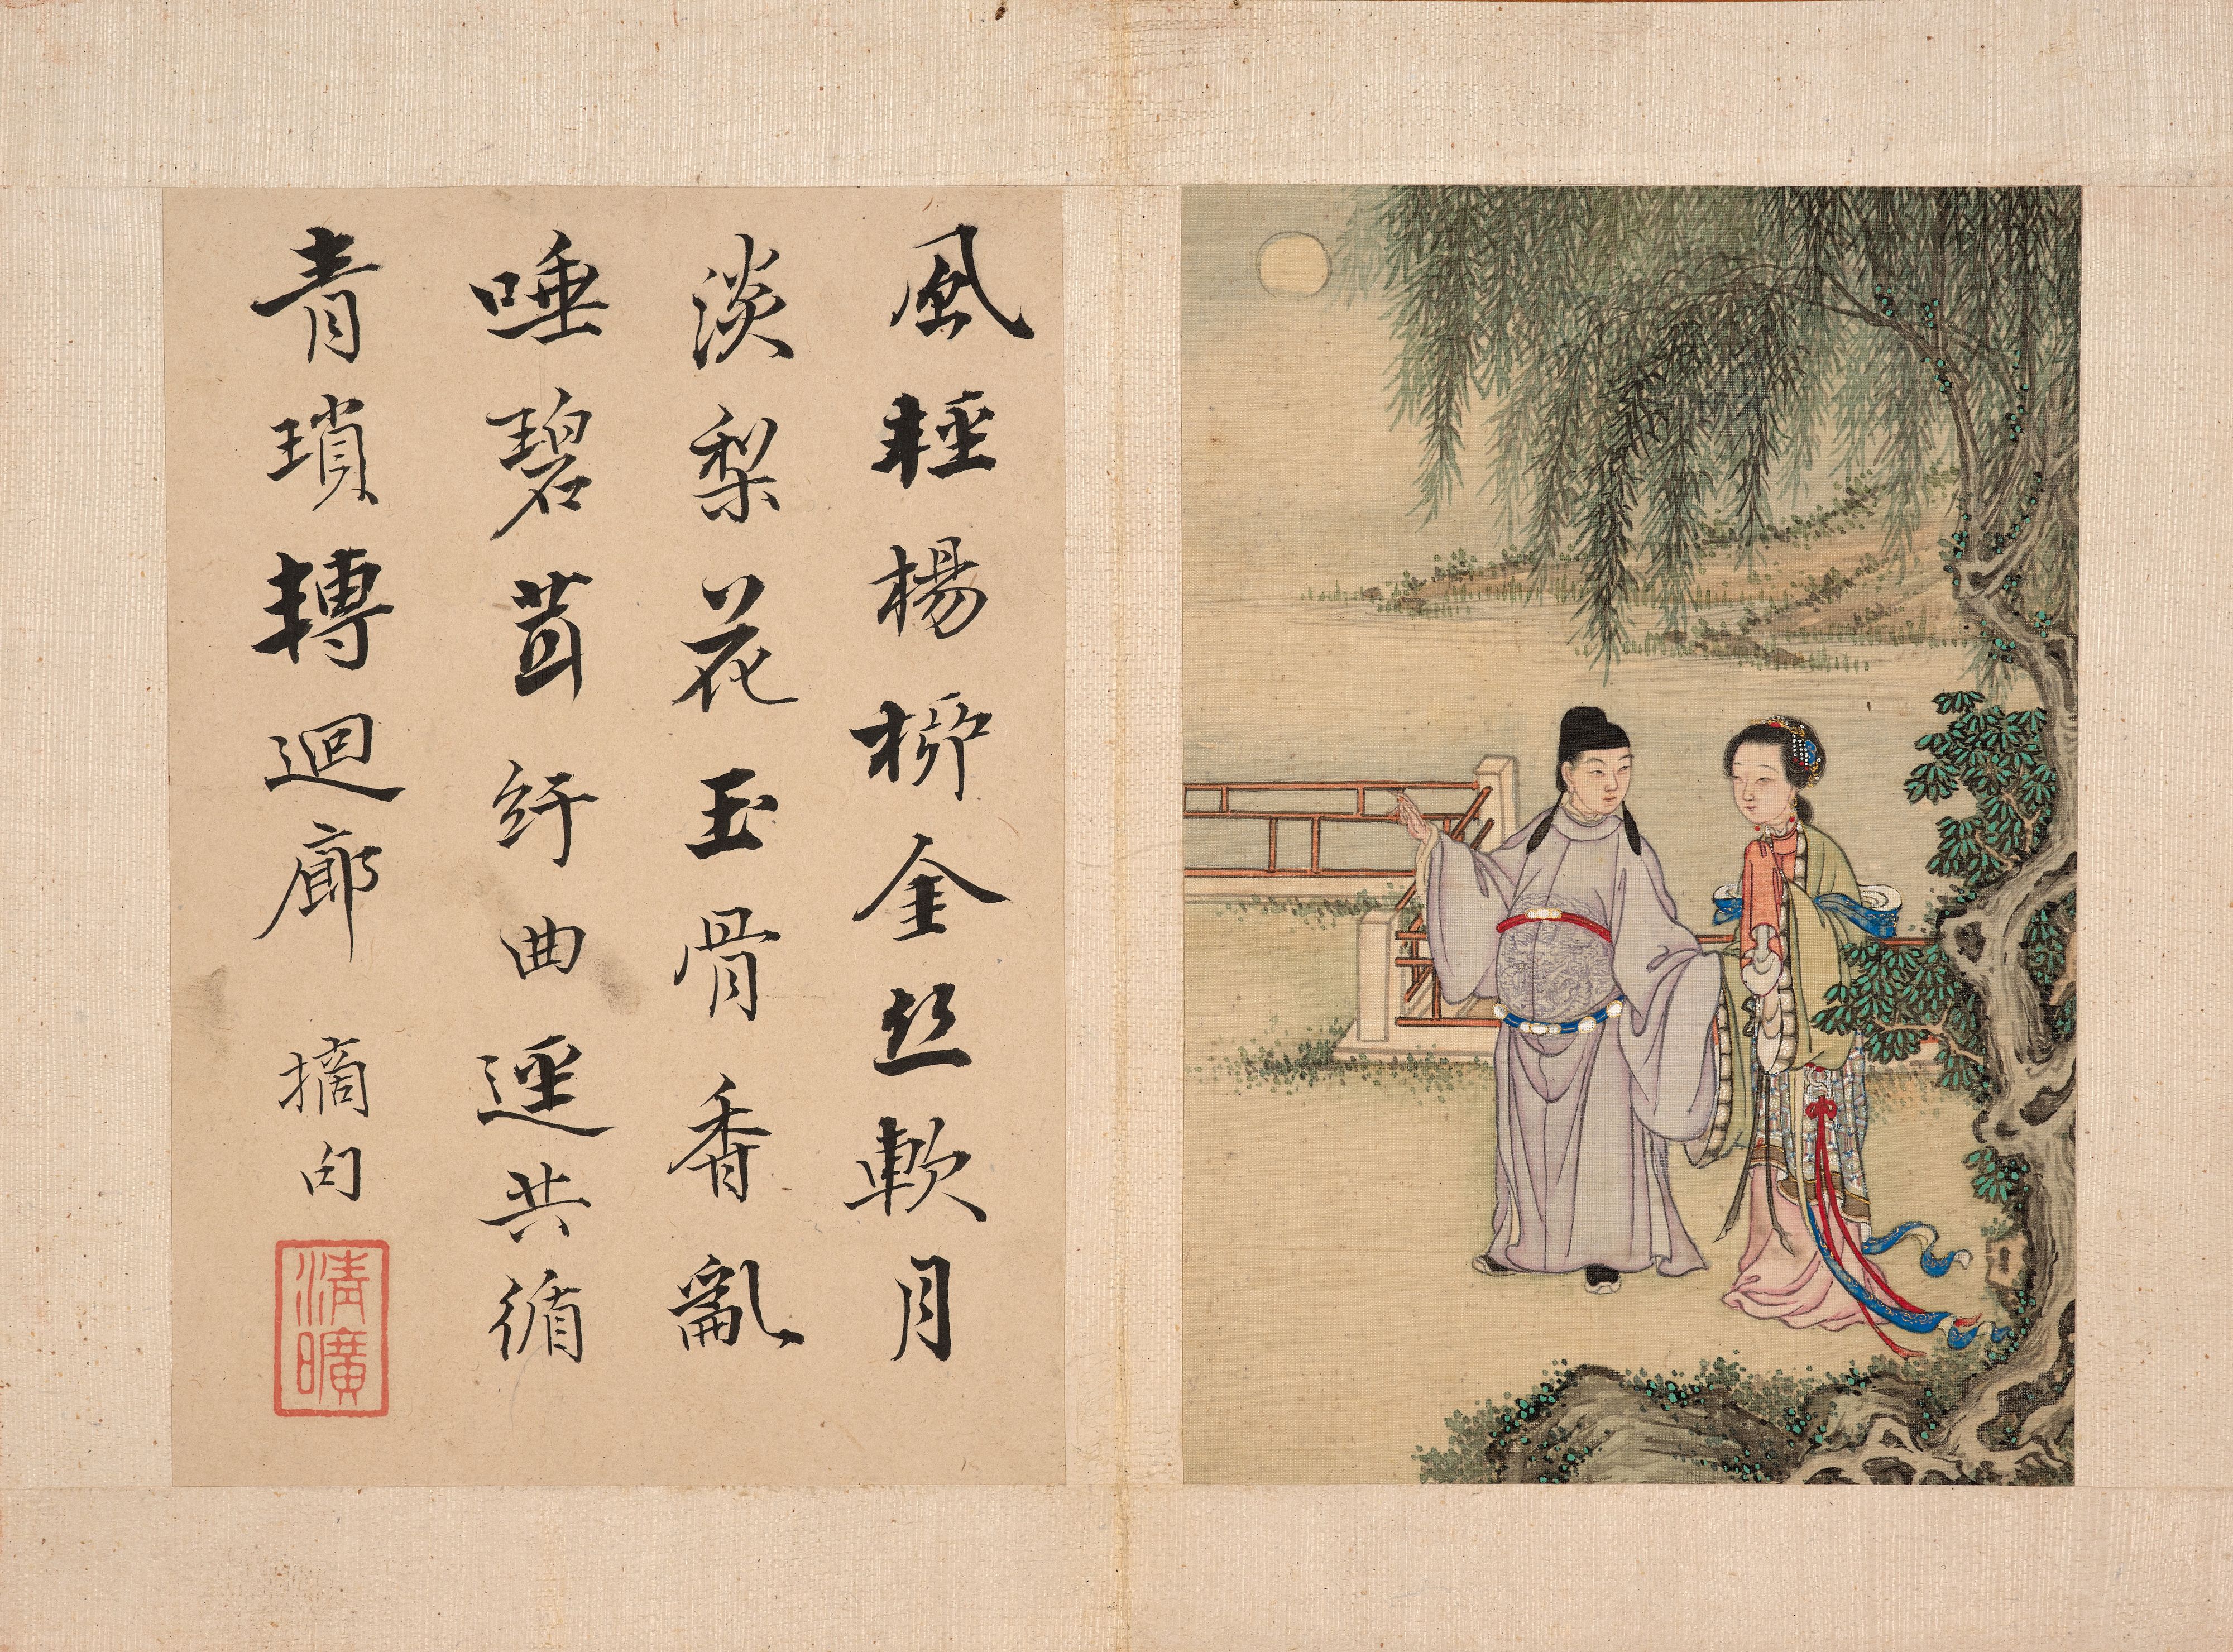 風輕楊柳金絲軟月
淡梨花玉骨香亂
唾碧茸紆曲逕共循
青瑣轉迴廊 摘句
清曠